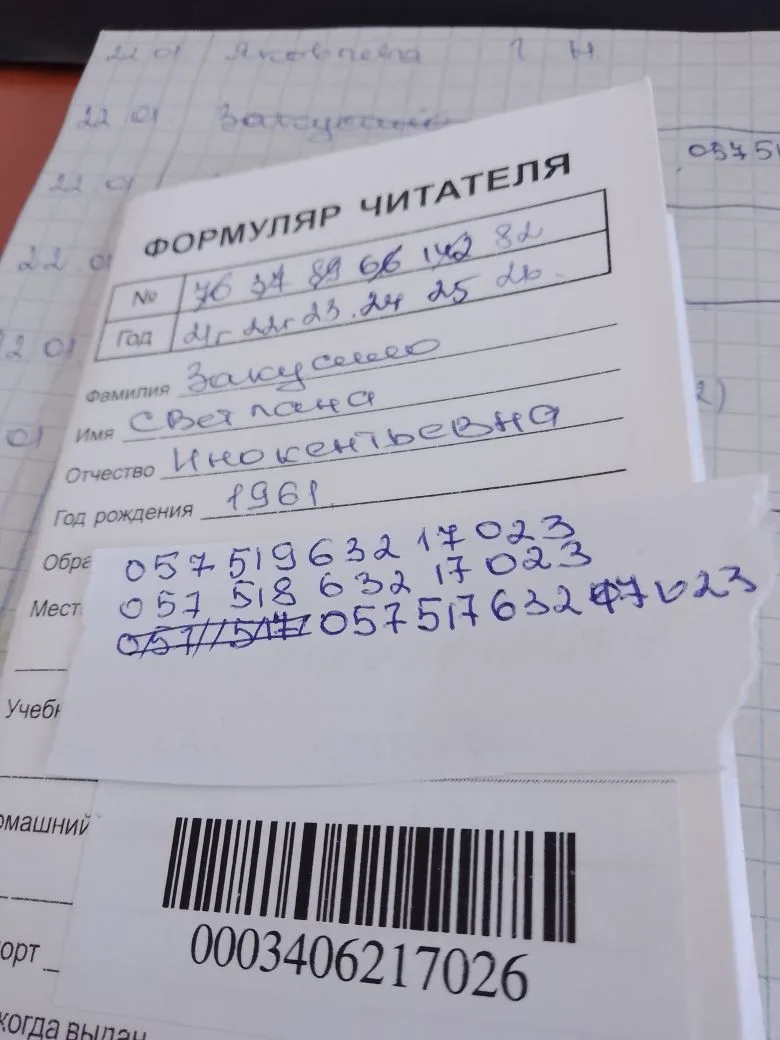 22 01 Яковлева Г Н
22 01
22 01
22 0
2 01
01
05751
2)
ФОРМУЛЯР ЧИТАТЕЛЯ
№ 76 37 89 66 142 82
Год 21г 22г 23. 24 25 26.
Фамилия Закусило
Имя Светлана
Отчество Инокентьевна
Год рождения 1961
Обра
Мест
057 519 632 17 023
057 518 632 17 023
057 517 057 517 632 17 023
Учебн
омашний
0003406217026
орт
когда выдан